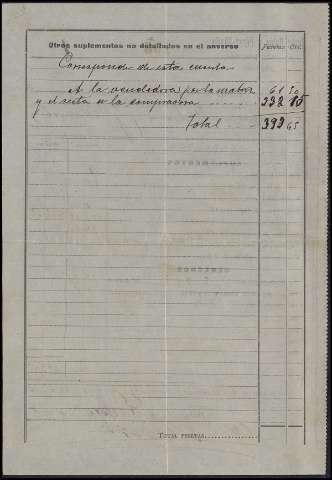 Otros suplementos no detallados en el anverso Pesetas Cts.
Corresponde de esta cuenta
A la vendedora por la matriz 61 50
y el resto a la compradora 332 15
Total 393 65
TOTAL PESETAS